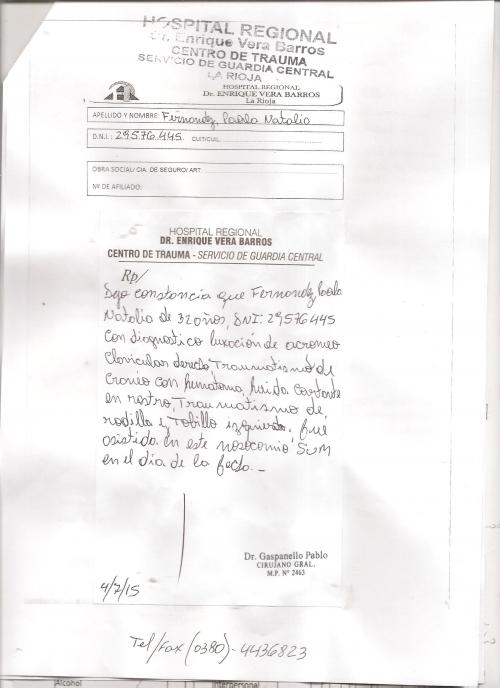 HOSPITAL REGIONAL
Dr. Enrique Vera Barros
CENTRO DE TRAUMA
SERVICIO DE GUARDIA CENTRAL
LA RIOJA
HOSPITAL REGIONAL
Dr. ENRIQUE VERA BARROS
La Rioja
APELLIDO Y NOMBRE: Fernandez, Paola Natalia
D.N.I.: 29576445 CUIT/CUIL:
OBRA SOCIAL/ CIA. DE SEGURO/ ART:
Nº DE AFILIADO:
HOSPITAL REGIONAL
DR. ENRIQUE VERA BARROS
CENTRO DE TRAUMA - SERVICIO DE GUARDIA CENTRAL
Rp/
Dejo constancia que Fernandez, Paola
Natalia de 32 años, DNI: 29576445
Con diagnostico luxación de acromeo
Clavicular derecho, Traumatismo de
Craneo con hematoma, herida cortante
en rostro, Traumatismo de
rodilla y Tobillo izquierdo, fue
asistida en este nosocomio
en el dia de la fecha. -
Dr. Gaspanello Pablo
CIRUJANO GRAL.
M.P. Nº 2463
4/7/15
Tel/Fax (0380) - 4436823
Alcohol
Interpersonal